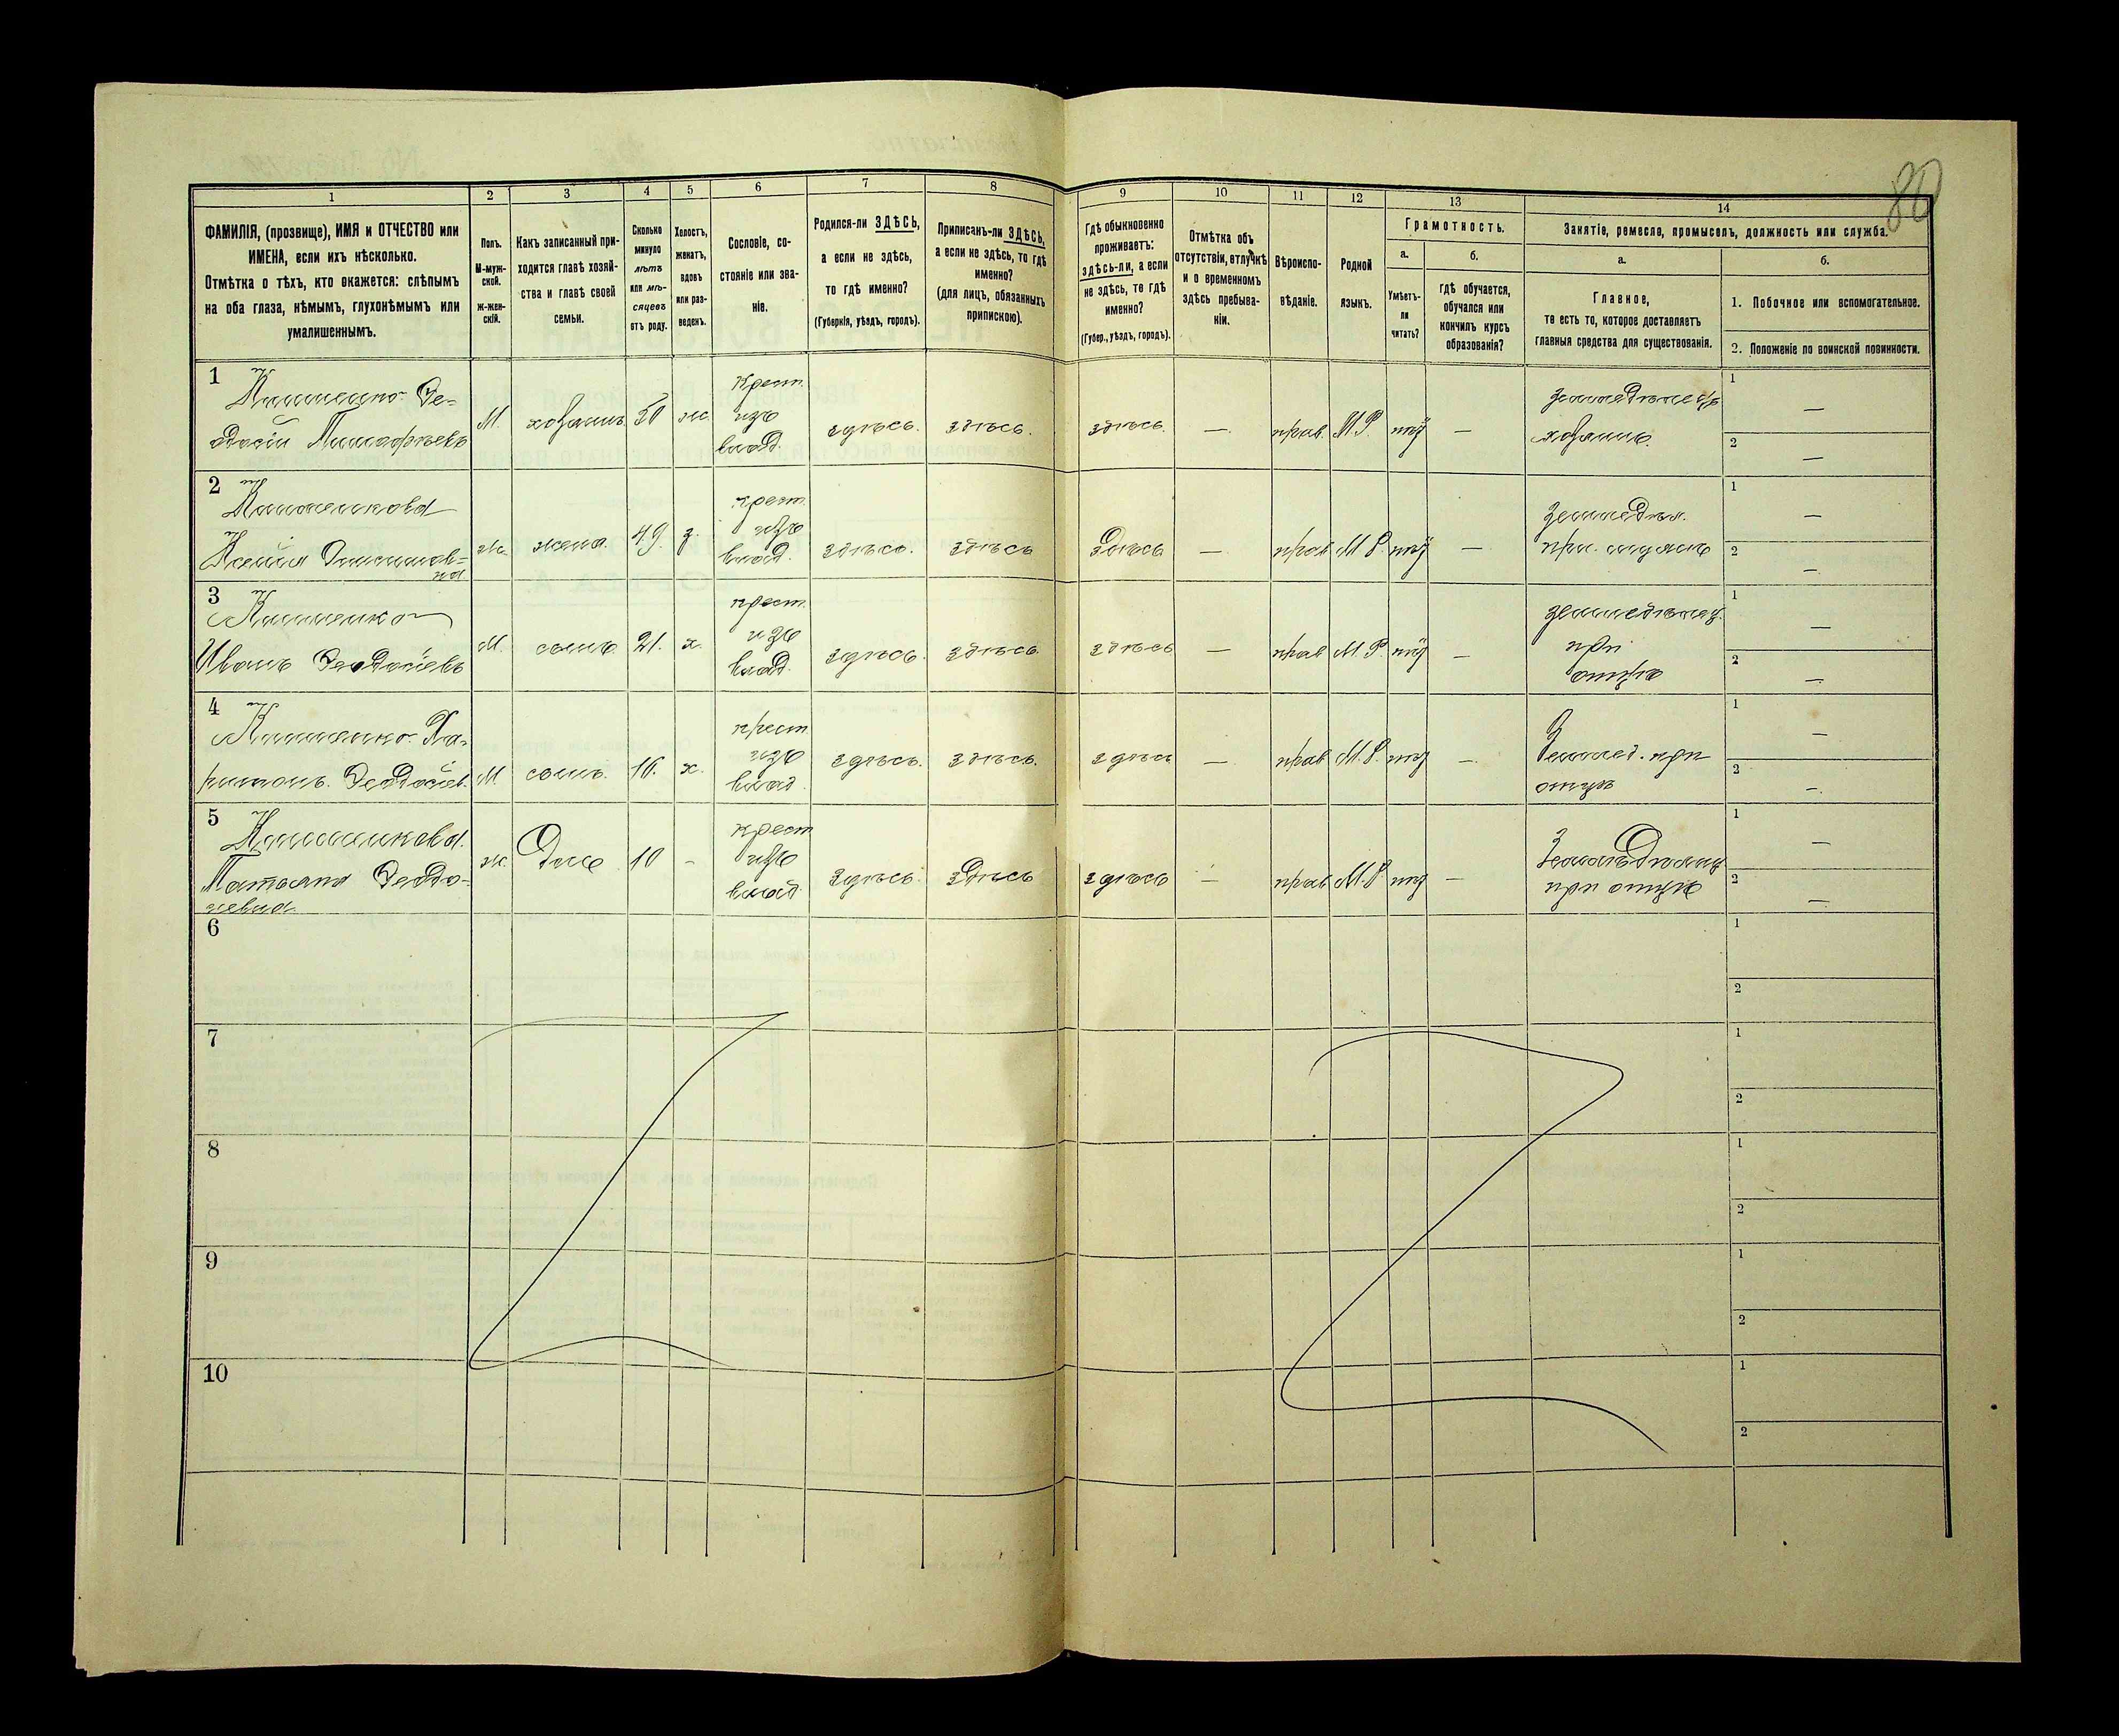 80
1
2
3
4
5
6
7
8
9
10
11
12
13
14
ФАМИЛІЯ, (прозвище), ИМЯ и ОТЧЕСТВО или
ИМЕНА, если ихъ нѣсколько.
Отмѣтка о тѣхъ, кто окажется: слѣпымъ
на оба глаза, нѣмымъ, глухонѣмымъ или
умалишеннымъ.
Полъ.
М-муж-
ской.
Ж-жен-
скій.
Какъ записанный при-
ходится главѣ хозяй-
ства и главѣ своей
семьи.
Сколько
минуло
лѣтъ
или мѣ-
сяцевъ
отъ роду.
Холостъ,
женатъ,
вдовъ
или раз-
веденъ.
Сословіе, со-
стояніе или зва-
ніе.
Родился-ли ЗДѢСЬ,
а если не здѣсь,
то гдѣ именно?
(Губернія, уѣздъ, городъ).
Приписанъ-ли ЗДѢСЬ,
а если не здѣсь, то гдѣ
именно?
(для лицъ, обязанныхъ
припискою).
Гдѣ обыкновенно
проживаетъ:
здѣсь-ли, а если
не здѣсь, то гдѣ
именно?
(Губер., уѣздъ, городъ).
Отмѣтка объ
отсутствіи, отлучкѣ
и о временномъ
здѣсь пребыва-
ніи.
Вѣроиспо-
вѣданіе.
Родной
языкъ.
Грамотность.
а.
Умѣетъ-
ли
читать?
б.
гдѣ обучается,
обучался или
кончилъ курсъ
образованія?
Занятіе, ремесло, промыселъ, должность или служба.
а.
Главное,
то есть то, которое доставляетъ
главныя средства для существованія.
б.
1. Побочное или вспомогательное.
2. Положеніе по воинской повинности.
1
Ѳе-
одосій
М. хозяинъ 50 ж.
крест.
изъ
влад.
здѣсь. здѣсь. здѣсь. — прав. М.Р. нѣт —
земледѣлецъ
хозяинъ.
1 —
2 —
2
Ксенія
ж. жена. 49. з.
крест.
изъ
влад.
здѣсь. здѣсь здѣсь — прав М.Р. нѣт —
земледѣл.
при мужѣ
1 —
2 —
3
Иванъ Ѳеодосіевъ
М. сынъ 21. х.
крест.
изъ
влад.
здѣсь. здѣсь. здѣсь — прав М.Р. нѣт —
земледѣлец.
при
отцѣ
1 —
2 —
4
Ха-
ритонъ. Ѳеодосіев.
М сынъ. 16. х.
крест
изъ
влад.
здѣсь. здѣсь. здѣсь — прав М.Р. нѣт —
Землед. при
отцѣ
1 —
2 —
5
Татьяна Ѳеодо-
сіевна.
ж. Дочь 10 -
крест
изъ
влад.
здѣсь. здѣсь здѣсь — прав М.Р. нѣт —
при отцѣ
1 —
2 —
6
1
2
7
1
2
8
1
2
9
1
2
10
1
2